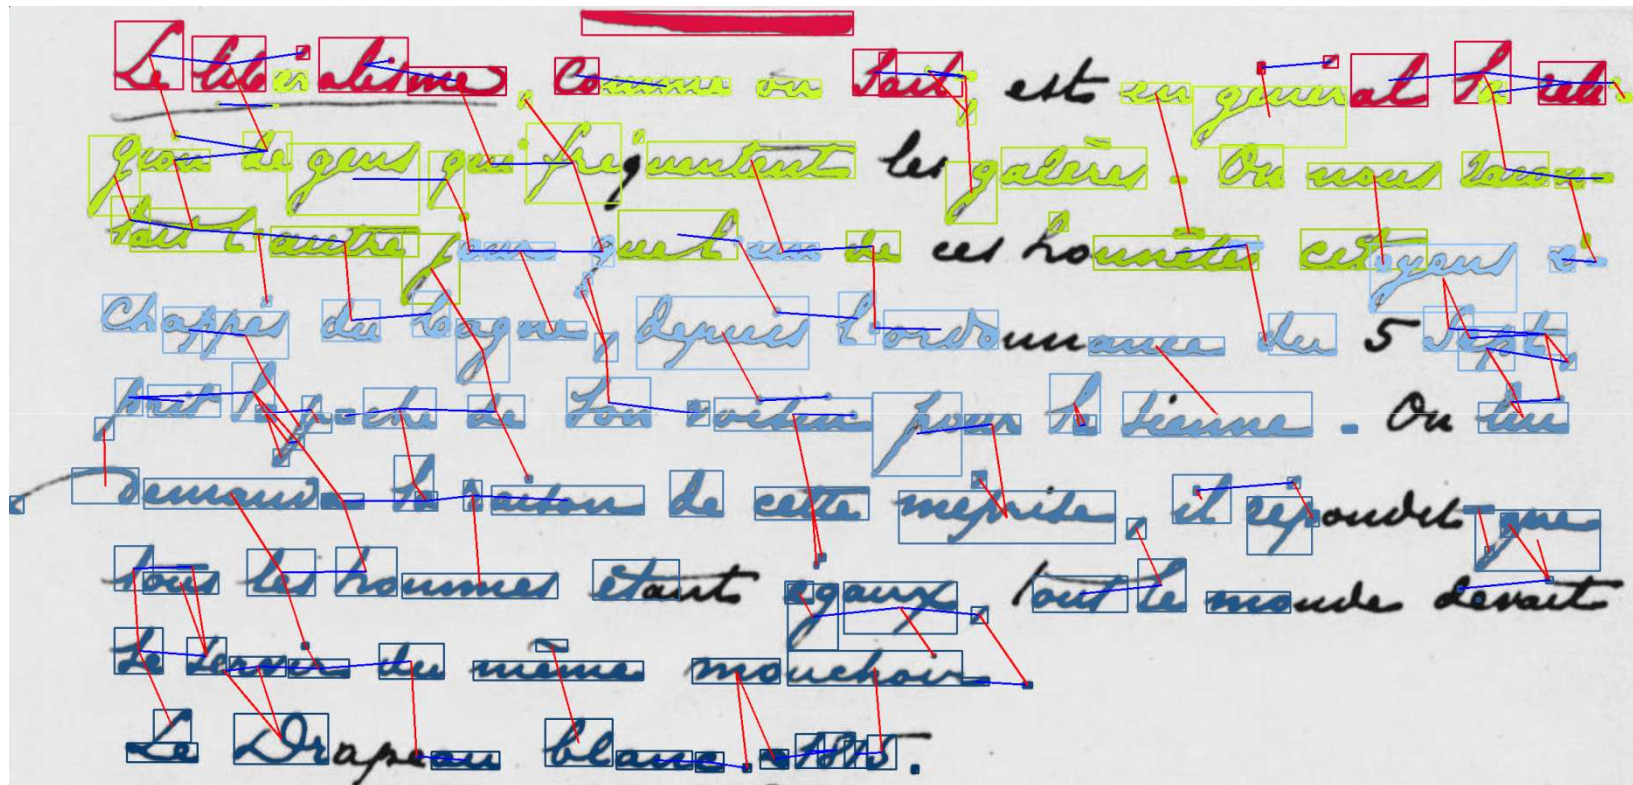 Le libéralisme comme on sait est en général la reli
gion de gens qui fréquentent les galères. On nous racon-
tait l'autre jour que l'un de ces honnêtes citoyens é-
chappés du bagne, depuis l'ordonnance du 5 Sept,
prit la poche de son voisin pour la sienne. On lui
demanda la raison de cette méprise, il répondit que
tous les hommes étant égaux tout le monde devait
se servir du même mouchoir.
Le Drapeau blanc. 1815.